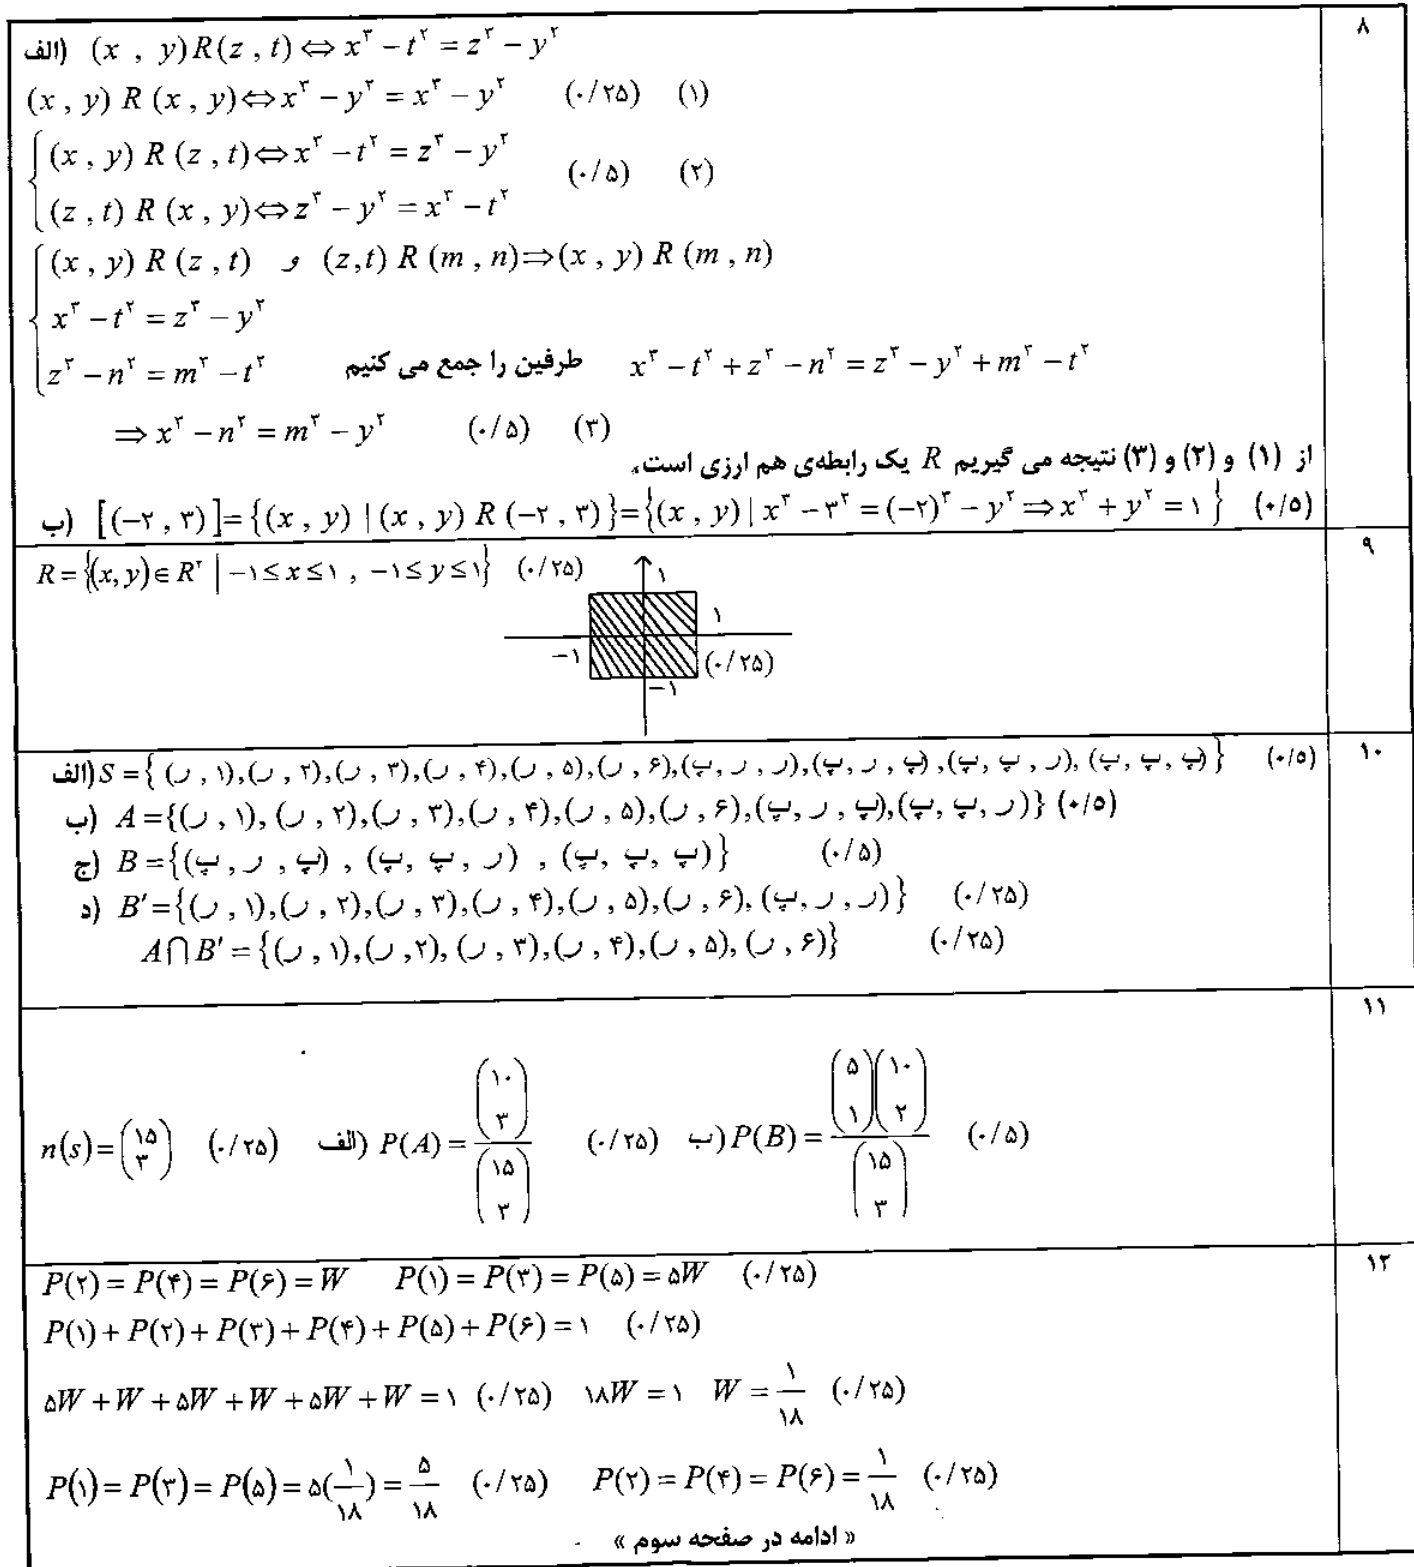 ۸
الف) (x , y) R (z , t) ⇔ x^۳ − t^۲ = z^۳ − y^۲
(x , y) R (x , y) ⇔ x^۳ − y^۲ = x^۳ − y^۲ (۰/۲۵) (۱)
(x , y) R (z , t) ⇔ x^۳ − t^۲ = z^۳ − y^۲
(۰/۵) (۲)
(z , t) R (x , y) ⇔ z^۳ − y^۲ = x^۳ − t^۲
(x , y) R (z , t) و (z,t) R (m , n) ⇒ (x , y) R (m , n)
x^۳ − t^۲ = z^۳ − y^۲
z^۳ − n^۲ = m^۳ − t^۲ طرفین را جمع می کنیم x^۳ − t^۲ + z^۳ − n^۲ = z^۳ − y^۲ + m^۳ − t^۲
⇒ x^۳ − n^۲ = m^۳ − y^۲ (۰/۵) (۳)
از (۱) و (۲) و (۳) نتیجه می گیریم R یک رابطه‌ی هم ارزی است.
ب) [(−۲ , ۳)] = {(x , y) | (x , y) R (−۲ , ۳)} = {(x , y) | x^۳ − ۳^۲ = (−۲)^۳ − y^۲ ⇒ x^۳ + y^۲ = ۱} (۰/۵)
۹
R = {(x, y) ∈ R^۲ | −۱ ≤ x ≤ ۱ , −۱ ≤ y ≤ ۱} (۰/۲۵)
۱
۱
−۱
(۰/۲۵)
−۱
۱۰
الف) S = {(ر , ۱),(ر , ۲),(ر , ۳),(ر , ۴),(ر , ۵),(ر , ۶),(پ , ر , ر),(پ , ر , پ),(پ , پ , ر),(پ , پ , پ)} (۰/۵)
ب) A = {(ر , ۱),(ر , ۲),(ر , ۳),(ر , ۴),(ر , ۵),(ر , ۶),(پ , ر , پ),(پ , پ , ر)} (۰/۵)
ج) B = {(پ , ر , پ) , (پ , پ , ر) , (پ , پ , پ)} (۰/۵)
د) B′ = {(ر , ۱),(ر , ۲),(ر , ۳),(ر , ۴),(ر , ۵),(ر , ۶),(پ , ر , ر)} (۰/۲۵)
A ∩ B′ = {(ر , ۱),(ر , ۲),(ر , ۳),(ر , ۴),(ر , ۵),(ر , ۶)} (۰/۲۵)
۱۱
n(s) = (۱۵ ۳) (۰/۲۵) الف) P(A) = (۱۰ ۳) / (۱۵ ۳) (۰/۲۵) ب) P(B) = (۵ ۱)(۱۰ ۲) / (۱۵ ۳) (۰/۵)
۱۲
P(۲) = P(۴) = P(۶) = W P(۱) = P(۳) = P(۵) = ۵W (۰/۲۵)
P(۱) + P(۲) + P(۳) + P(۴) + P(۵) + P(۶) = ۱ (۰/۲۵)
۵W + W + ۵W + W + ۵W + W = ۱ (۰/۲۵) ۱۸W = ۱ W = ۱/۱۸ (۰/۲۵)
P(۱) = P(۳) = P(۵) = ۵(۱/۱۸) = ۵/۱۸ (۰/۲۵) P(۲) = P(۴) = P(۶) = ۱/۱۸ (۰/۲۵)
« ادامه در صفحه سوم »